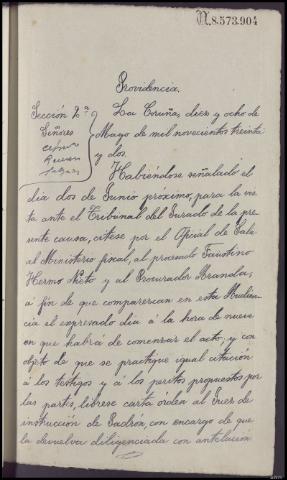 N.8.573.904
Providencia.
Sección 2ª
Señores
La Coruña, diez y ocho de
Mayo de mil novecientos treinta
y dos.
Habiéndose señalado el
día dos de Junio próximo, para la vis-
ta ante el Tribunal del Jurado de la pre-
sente causa, cítese por el Oficial de Sala
al Ministerio fiscal, al procesado Faustino
Hermo Nieto y al Procurador Aranda,
á fin de que comparezcan en esta Audien-
cia el expresado día á la hora de nueve
en que habrá de comenzar el acto, y con
objeto de que se practique igual citación
á los testigos y á los peritos propuestos por
las partes, líbrese carta orden al Juez de
instrucción de Padrón, con encargo de que
la devuelva diligenciada con antelación